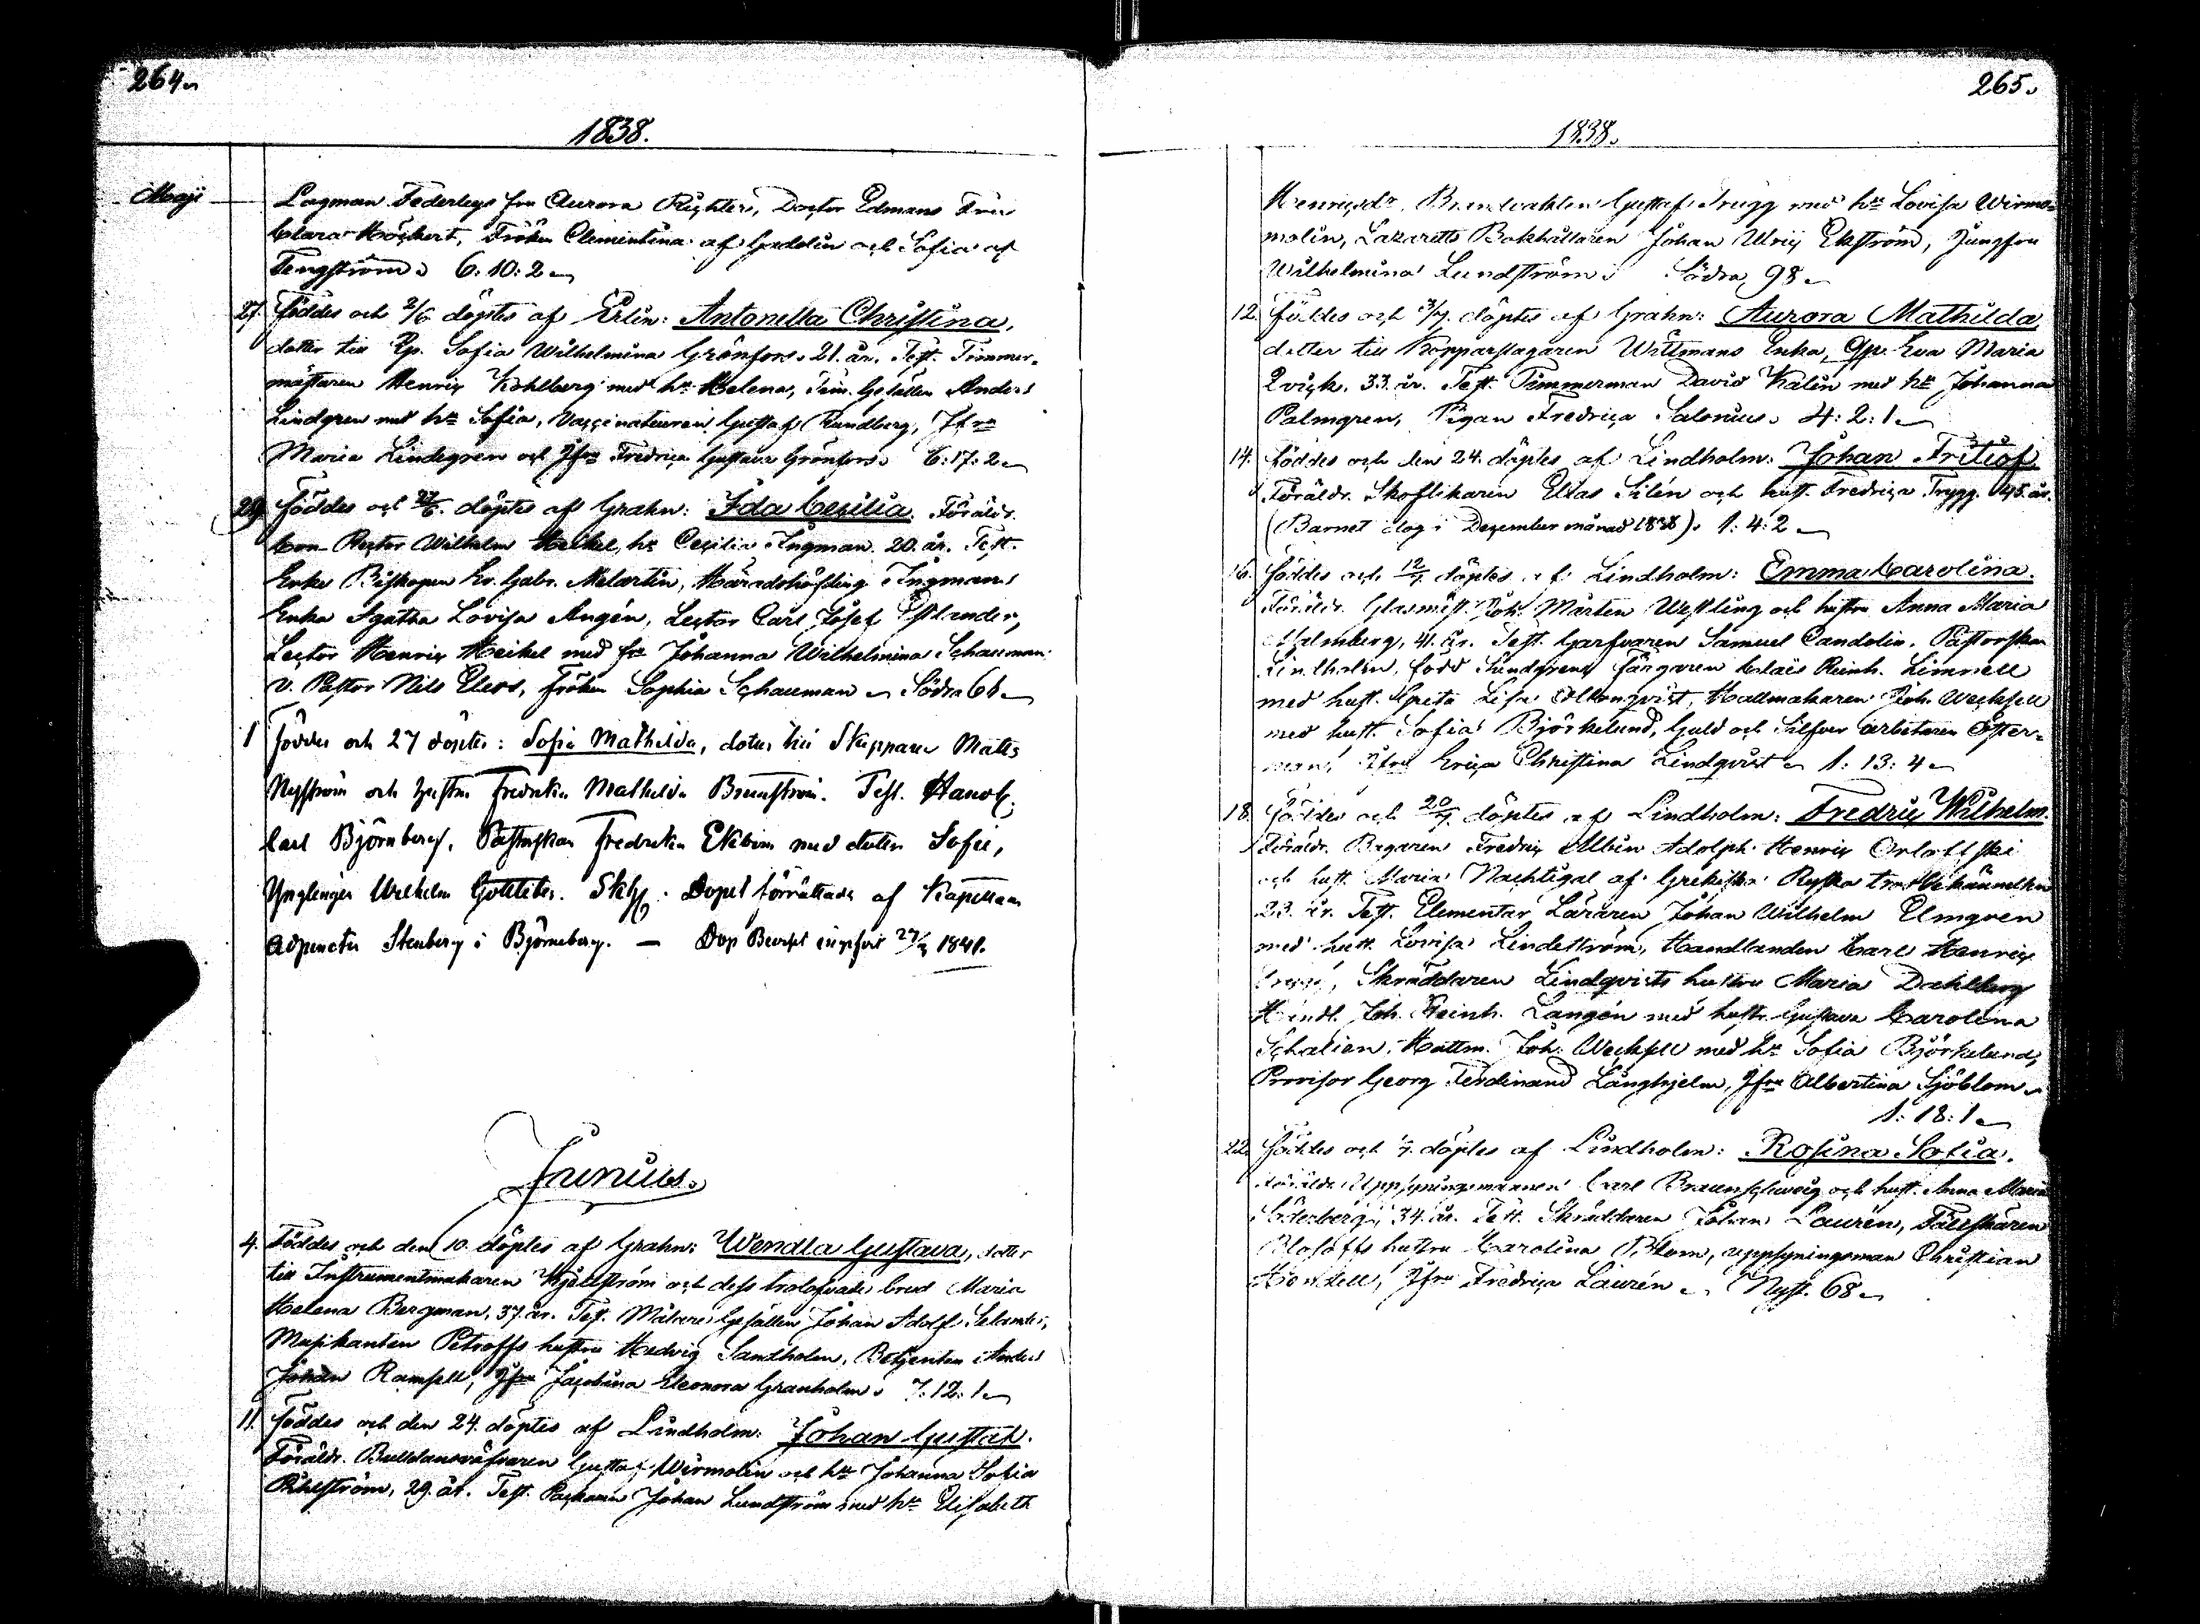 264.
1838.
Maji
Lagman Federleys fru Aurora Richter, Doctor Edmans Fru
Clara Höckert, Fröken Clementina af Gadolin och Sofia af
Tengström. 6: 10: 2
27. Föddes och 2/6 döptes af Erlin: Antonetta Christina,
dotter till Qp. Sofia Wilhelmina Grönfors. 21. år. Test. Timmer-
mästaren Henric Kohlberg med hu Helena, Tim. Gesällen Anders
Lindgren med hu Sofia, Vaccinateuren Gustaf Rundberg, Jfru
Maria Lindegren och Jfru Fredrica Gustava Grönfors. 6: 17: 2
29. Föddes och 27/6 döptes af Grahn: Ida Cecilia. Föräldr.
Con Rector Wilhelm Heikel, hu Cecilia Ingman. 20. år. Test.
Enke Biskopen Er. Gabr. Melartin, Häradshöfding Ingmans
Enka Agatha Lovisa Angén, Lector Carl Josef Estlander,
Lector Henric Heikel med fru Johanna Wilhelmina Schauman
V. Pastor Nils Elers, fröken Sophia Schauman Södra 66
1 Föddes och 27 döptes: Sofia Mathilda, dotter till Skepparen Matts
Nyström och hustru Fredrika Mathilda Brunström. Test. Handl.
Carl Björnberg, Pastorskan Fredrika Ekbom med dotter Sofie,
Ynglingen Wilhelm Gottleben. Dopet förrättades af Kapellans
Adjuncten Stenberg i Björneborg. — Dop Beviset infört 1841.
Junius.
4. Föddes och den 10. döptes af Grahn: Wendla Gustava, dotter
till Instrumentmakaren Kjällström och dess trolofvade brud Maria
Helena Bergman, 37. år. Test. Målare Gesällen Johan Adolf Selander,
Musikanten Petroffs hustru Hedvig Sandholm, Betjenten Anders
Johan Ramsell, Jfru Jacobina Eleonora Granholm. 7: 12: 1
11. Föddes och den 24. döptes af Lindholm: Johan Gustaf.
Föräldr. Buldansväfvaren Gustaf Wirmolin och hu Johanna Sofia
Pihlström, 29. år. Test. Packaren Johan Lundström med hu Elisabeth
265.
1838.
Henricsdr. Brandvakten Gustaf Trygg med hu Lovisa Wirmo-
molin, Lazaretts Bokhållaren Johan Ulric Ekström, Jungfru
Wilhelmina Lundström. Södra 98
12. Föddes och 3/7 döptes af Grahn: Aurora Mathilda
dotter till Kopparslagaren Wittmans Enka, Qp. Eva Maria
Qvick. 33. år. Test. Timmerman David Kalin med hu Johanna
Palmgren, Pigan Fredrica Salonius. 4: 2: 1
14. Föddes och den 24. döptes af Lindholm: Johan Fritiof
Föräldr. Skoflikaren Elias Silén och hust. Fredrica Trygg. 45. år.
(Barnet dog i December månad 1838). 1: 4: 2
16. Föddes och 12/7 döptes af Lindholm: Emma Carolina.
Föräldr. Glasmäst. Joh. Mårten Westling och hustru Anna Maria
Malmberg, 41. år. Test. Garfvaren Samuel Candolin, Pastorskan
Lindholm, född Sundgren, färgaren Claës Reinh. Limnell
med hust. Greta Lisa Holmqvist, Hattmakaren Joh. Wecksell
med hust. Sofia Björkelund, Guld och Silfver arbetaren Öster-
man, Jfru Erica Christina Lindqvist 1: 13: 4
18. Föddes och 20/7 döptes af Lindholm: Fredric Wilhelm.
Föräldr. Bagaren Fredric Albin Adolph Henric Orloffski
och hust. Maria Nachtigal af Grekiska Ryska trosbekännelsen
23. år. Test. Elementar Läraren Johan Wilhelm Elmgren
med hust. Lovisa Lindeström, Handlanden Carl Henric
Skräddaren Lindqvists hustru Maria Dahlberg
Handl. Joh. Reinh. Langén med hustr. Gustava Carolina
Schalien, Hattm. Joh. Wecksell med hu Sofia Björkelund,
Provisor Georg Ferdinand Långhjelm, Jfru Albertina Sjöblom
1: 18: 1
22. Föddes och /7 döptes af Lindholm: Rosina Sofia.
Föräldr. Uppsyningsmannen Carl Braunschweig och hust. Anna Maria
Söderberg, 34. år. Test. Skräddaren Johan Laurén, Fältskären
Blofoffs hustru Carolina Blom, uppsyningsman Christian
Jfru Fredrica Laurén Nyst. 68